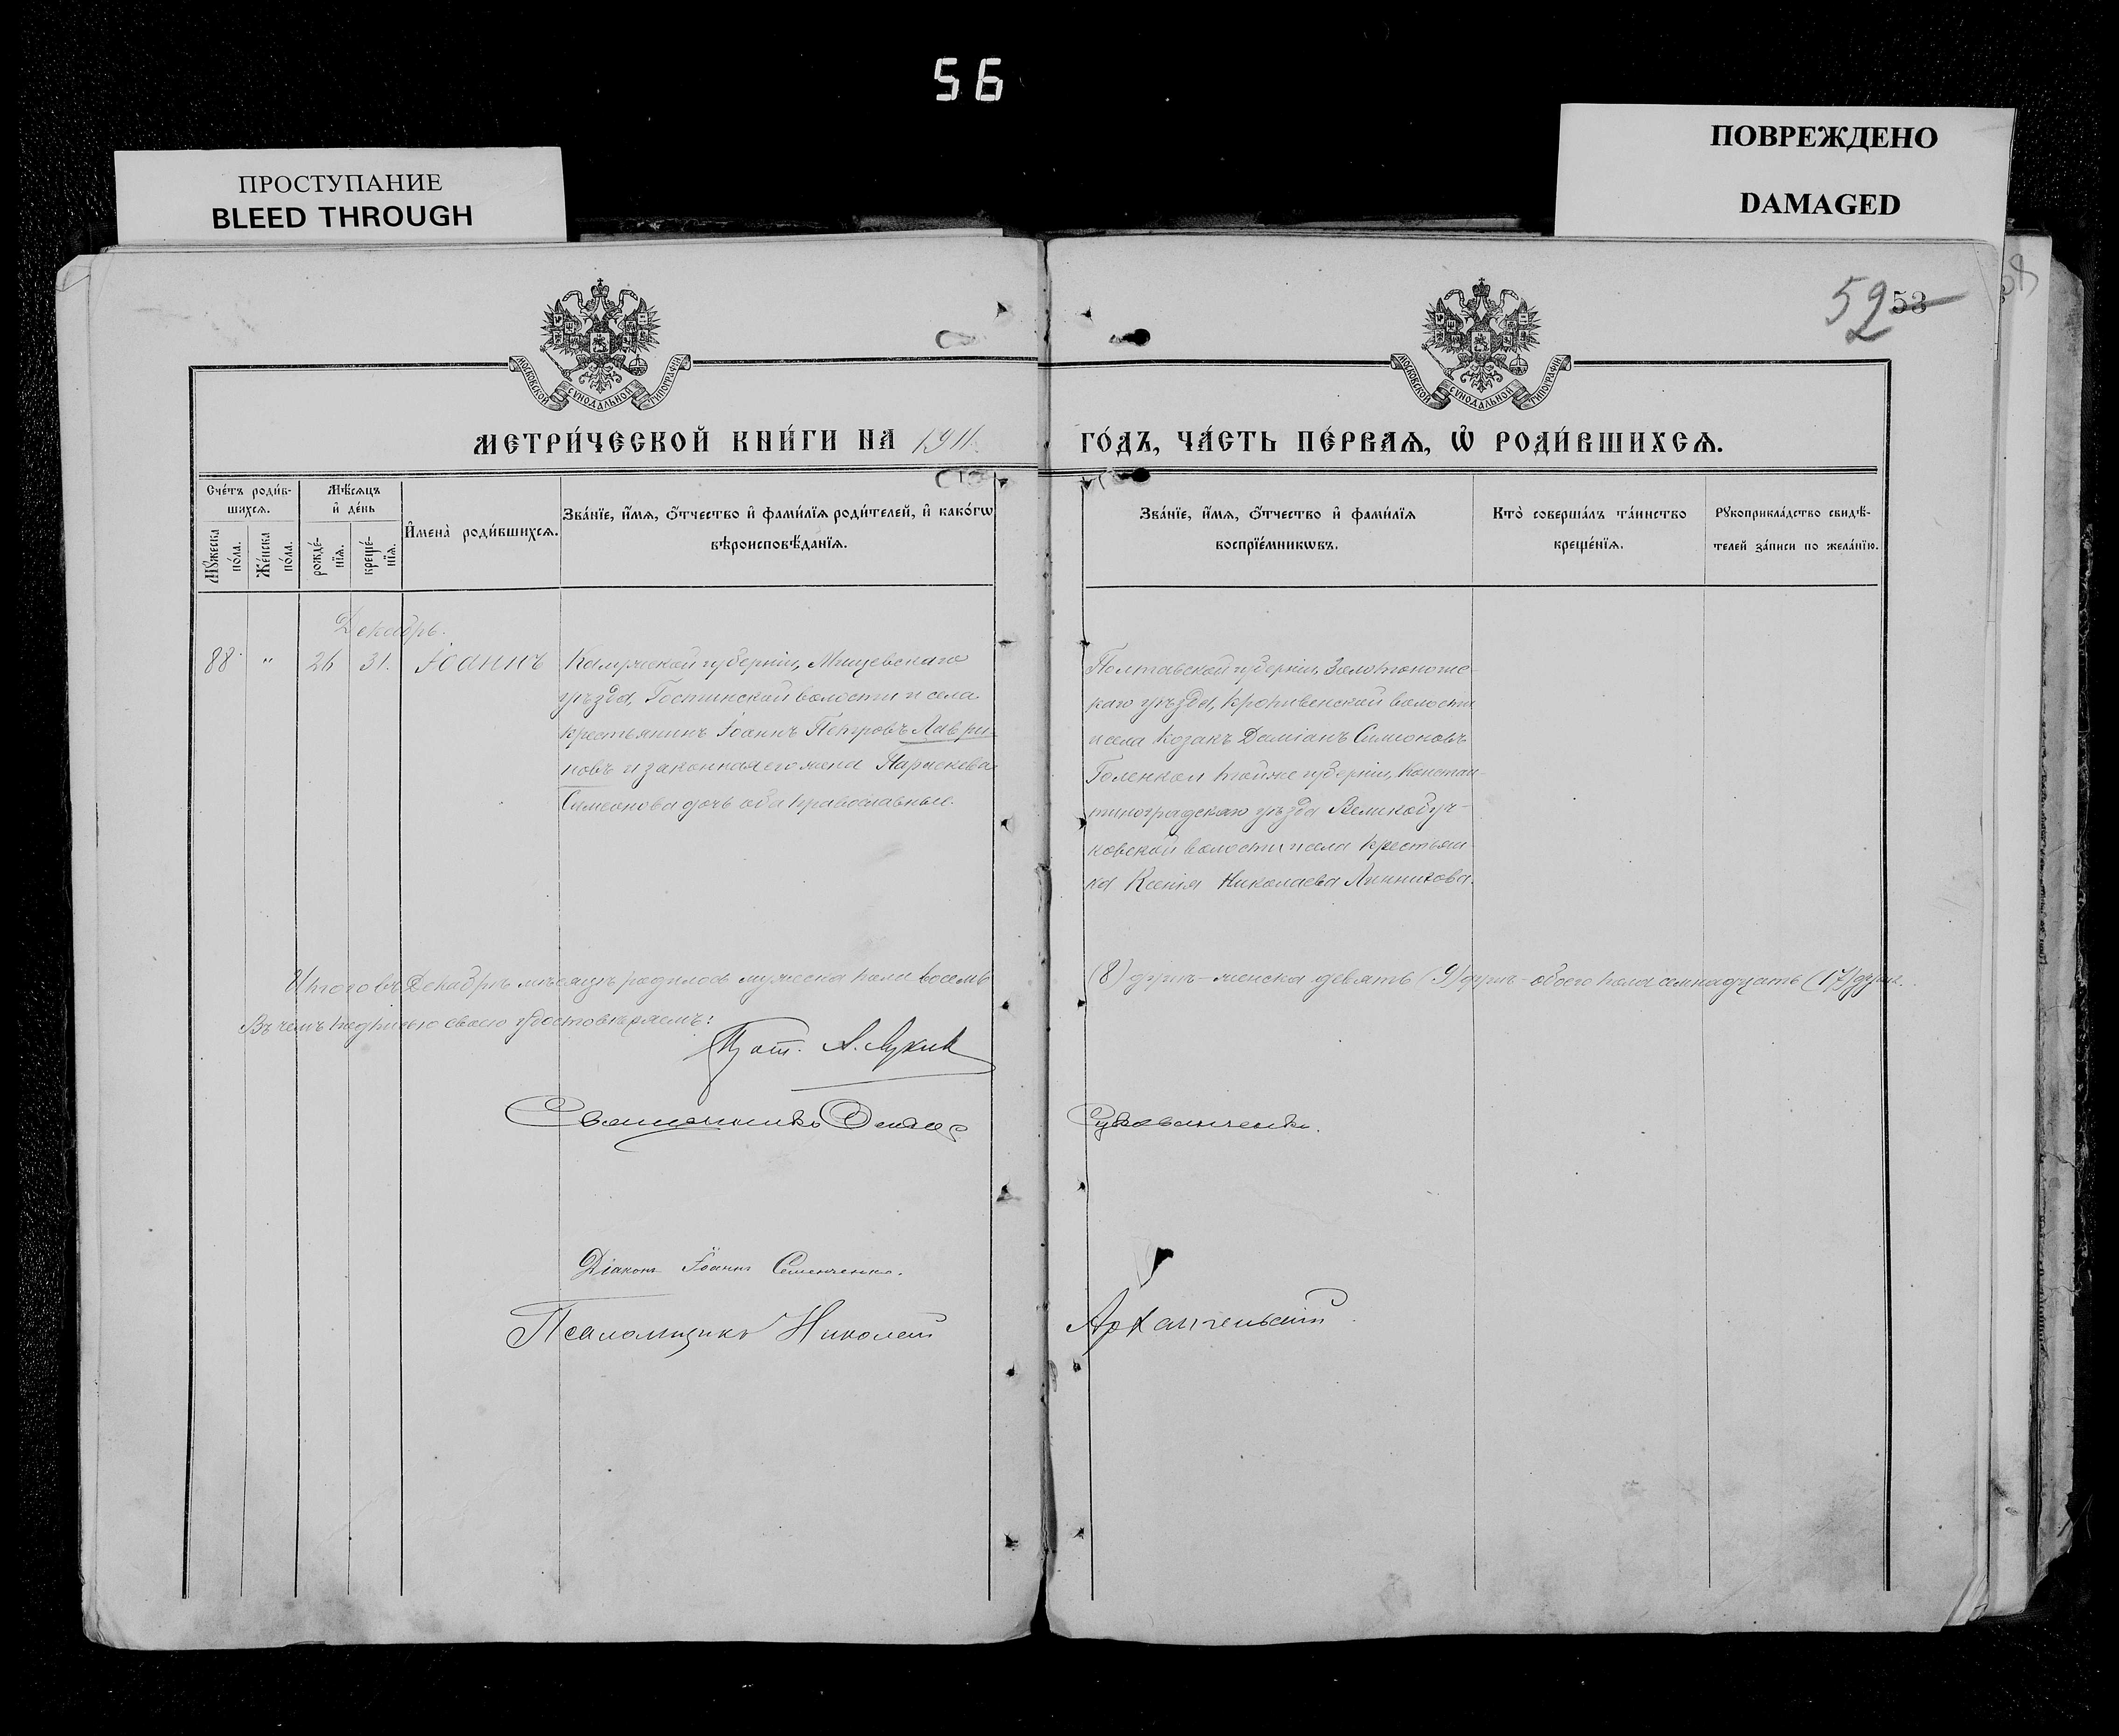 56
ПРОСТУПАНИЕ
BLEED THROUGH
ПОВРЕЖДЕНО
DAMAGED
58
52 53
МОСКОВСКОЙ СѴНОДАЛЬНОЙ ТИПОГРАФІИ
МОСКОВСКОЙ СѴНОДАЛЬНОЙ ТИПОГРАФІИ
МЕТРИ́ЧЕСКОЙ КНИ́ГИ НА 1911
ГО́ДЪ, ЧА́СТЬ ПЕ́РВАѦ, Ѡ҆ РОДИ́ВШИХСѦ.
Сче́тъ роди́в-
шихсѧ.
Мꙋ́жеска по́ла.
Же́нска по́ла.
Мѣ́сѧцъ
и҆ де́нь
рожде́-нїѧ.
креще́-нїѧ.
И҆мена̀ роди́вшихсѧ.
Зва́нїе, и҆́мѧ, ѻ҆́тчество и҆ фами́лїѧ роди́телей, и҆ како́гѡ
вѣроисповѣ́данїѧ.
Зва́нїе, и҆́мѧ, ѻ҆́тчество и҆ фами́лїѧ
воспрїе́мникѡвъ.
Кто̀ соверша́лъ та́инство
креще́нїѧ.
Рꙋкоприкла́дство свидѣ́-
телей за́писи по жела́нїю.
Декабрь.
88 " 26 31. Іоаннъ
Калужской губерніи, Мещевскаго
уѣзда, Гостинской волости и села
крестьянинъ Іоаннъ Петровъ Лаври-
новъ и законная его жена Параскева
Симеонова дочь оба православные.
Полтавской губерніи, Золотоноше-
каго уѣзда, Кропивенской волости
и села козакъ Даміанъ Симеоновъ
Голенко и той же губерніи, Констан-
тиноградскаго уѣзда Великобуч-
ковской волости и села крестьян-
ка Ксенія Николаева
Итого въ Декабрѣ мѣсяцѣ родилось мужеска пола восемь
(8) душъ - женска девять (9) душъ - обоего пола семнадцать (17) душъ.
Въ чемъ подписью своею удостовѣряемъ:
Прот. А. Лукин
Священникъ
Діаконъ Іоаннъ Семенченко.
Псаломщикъ Николай
Архангельскій